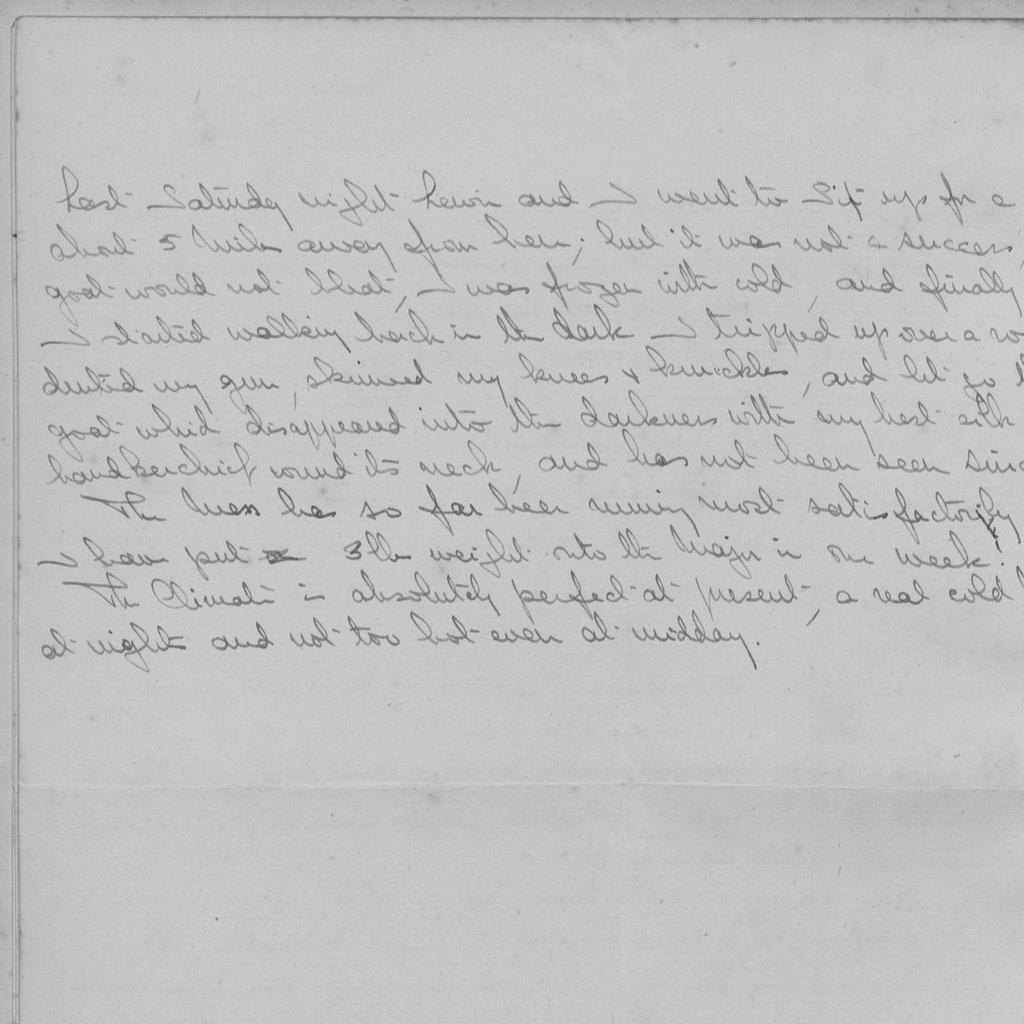 Last Saturday night Lewin and I went to sit up for a
about 5 miles away from here; but it was not a success,
goat would not bleat, I was frozen with cold, and finally
I started walking back in the dark I tripped up over a
dented my gun, skinned my knees & knuckles, and let go
goat which disappeared into the darkness with my best silk
handkerchief round its neck, and has not been seen
The Mess has so far been running most satisfactorily
I have put 3 lbs weight onto the Major in one week!
The Climate is absolutely perfect at present, a real cold
at nights and not too hot even at midday.